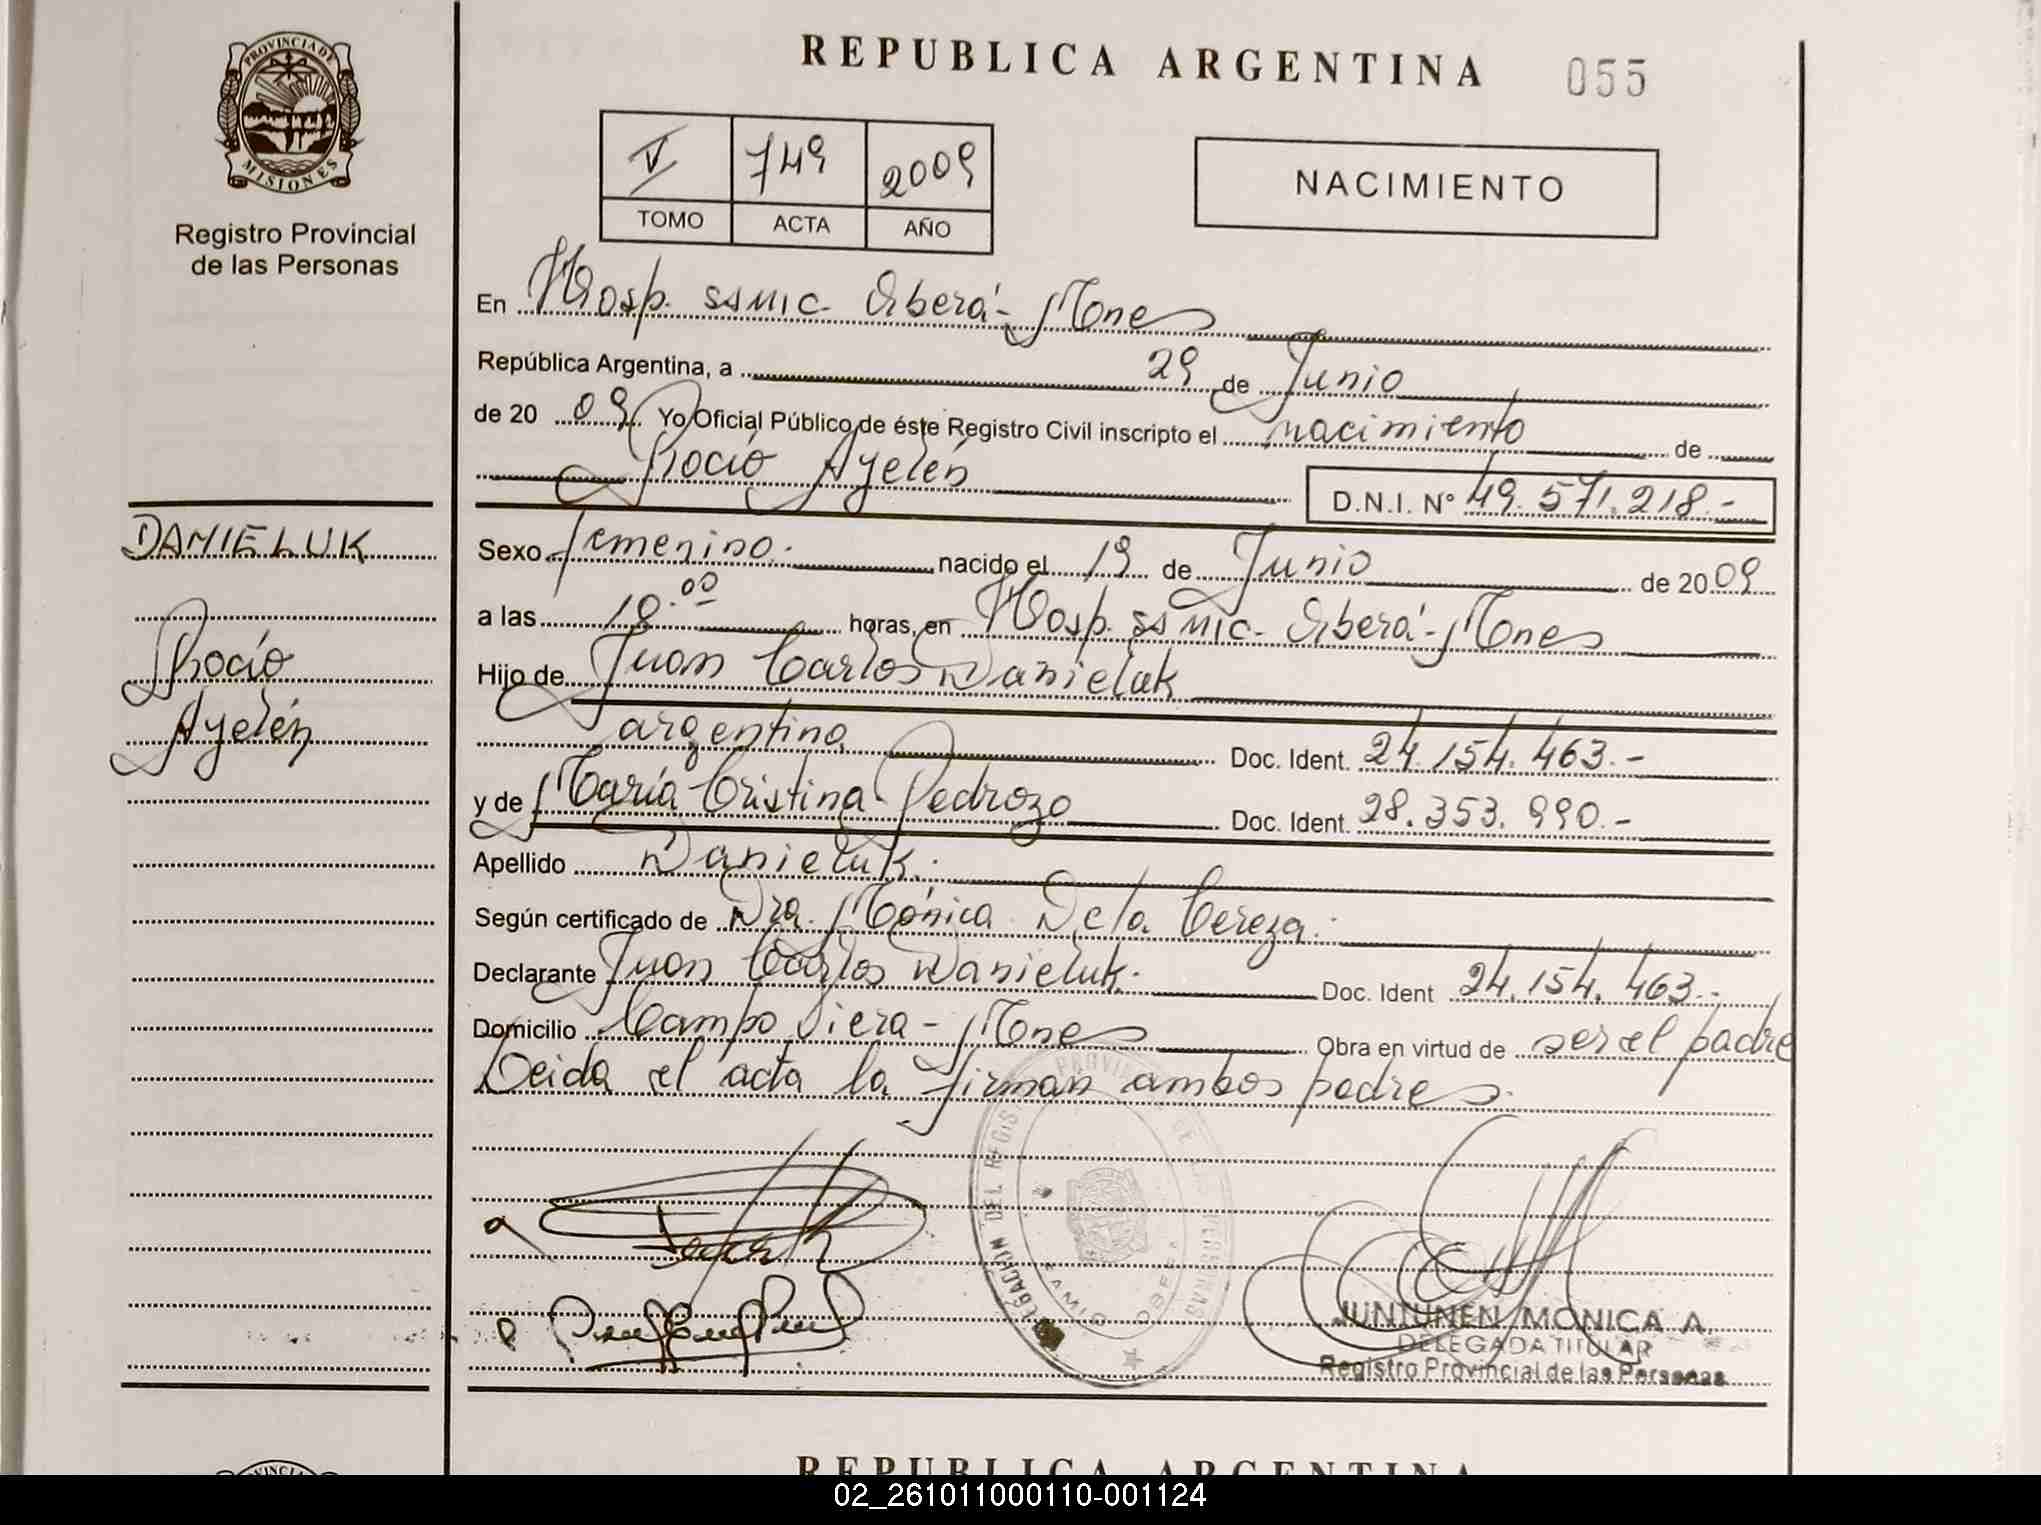 REPUBLICA ARGENTINA 055
PROVINCIA DE
MISIONES
Registro Provincial
de las Personas
V 749 2009
TOMO ACTA AÑO
NACIMIENTO
En Hosp. SSMIC. Oberá - Mnes
República Argentina, a 29 de Junio
de 20 09 Yo Oficial Público de éste Registro Civil inscripto el nacimiento de
Rocío Ayelén D.N.I. N° 49.571.218.-
DANIELUK
Rocío
Ayelén
Sexo femenino. nacido el 19 de Junio de 20 09
a las 18.00 horas, en Hosp. SSMIC. Oberá - Mnes
Hijo de Juan Carlos Danieluk
argentino Doc. Ident. 24.154.463.-
y de María Cristina Pedrozo Doc. Ident. 28.353.990.-
Apellido Danieluk.
Según certificado de Dra. Mónica De la Cereza.
Declarante Juan Carlos Danieluk. Doc. Ident 24.154.463.-
Domicilio Campo Viera - Mnes Obra en virtud de ser el padre
Leida el acta la firman ambos padres.
DELEGACION DEL REGISTRO PROVINCIAL DE LAS PERSONAS
OBERA
JUNTUNEN MONICA A.
DELEGADA TITULAR
Registro Provincial de las Personas
REPUBLICA ARGENTINA
02_261011000110-001124